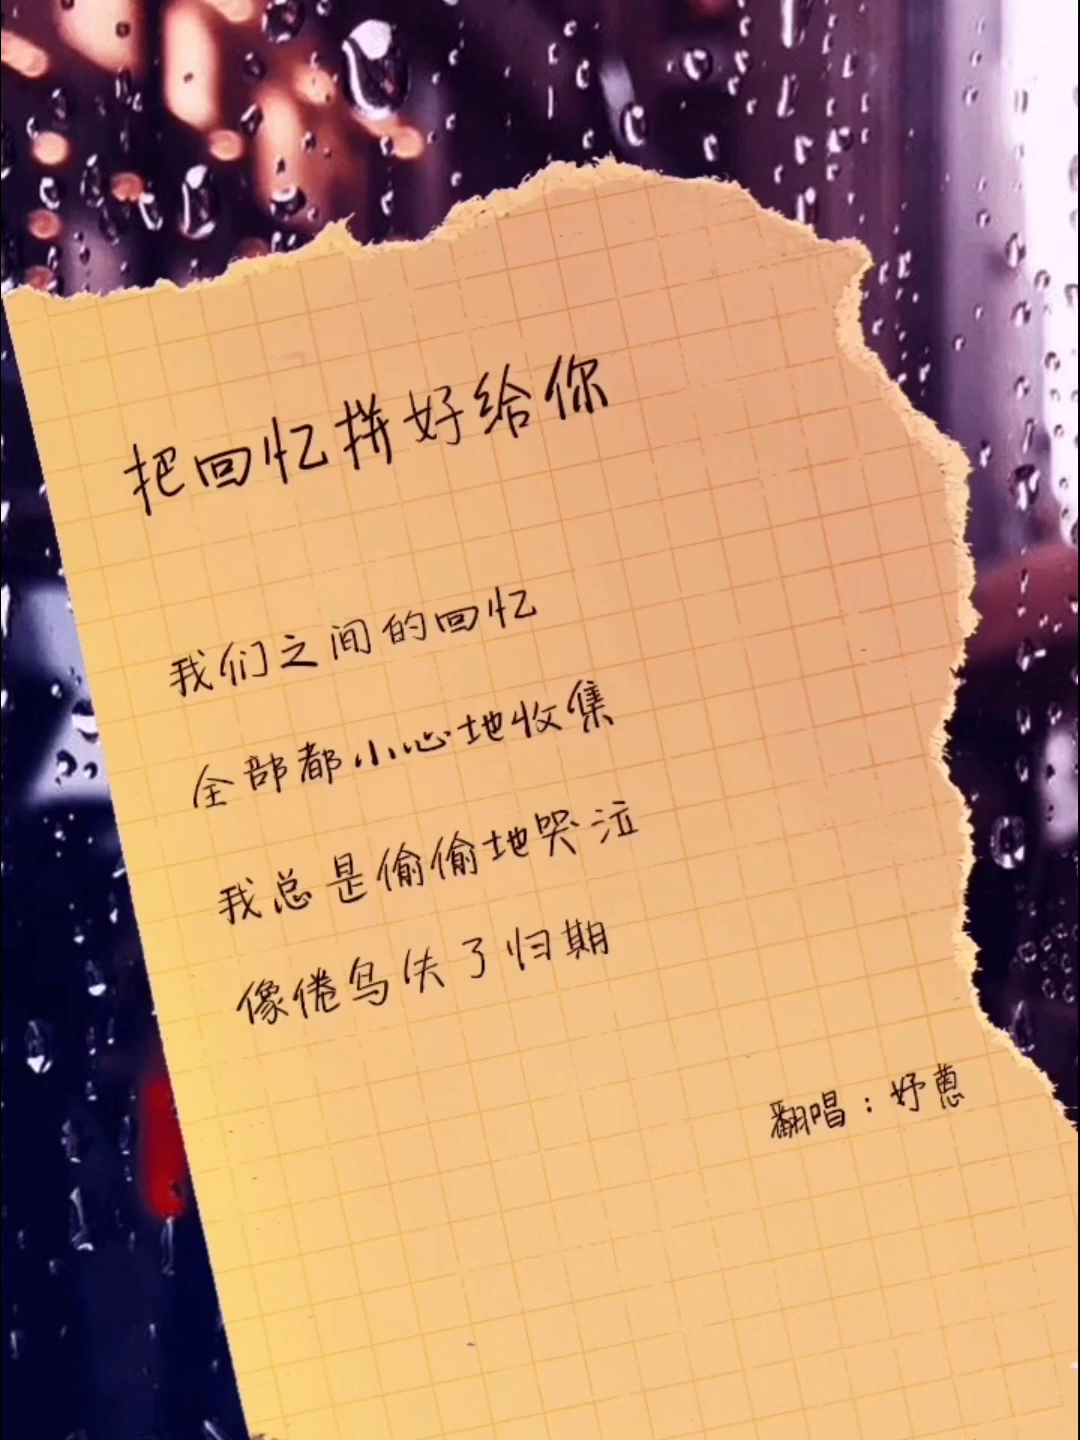 把回忆拼好给你
我们之间的回忆
全部都小心地收集
我总是偷偷地哭泣
像倦鸟失了归期
翻唱：妤蒽